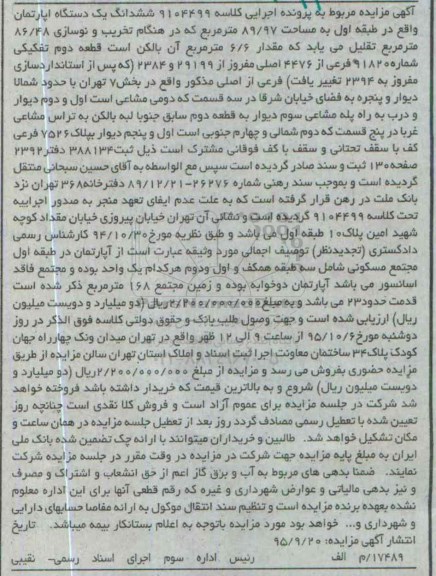 آگهی مزایده مربوط به پرونده اجرایی کلاسه ۹۱۰۴۴۹۹ ششدانگ یک دستگاه آپارتمان
واقع در طبقه اول به مساحت ۸۹/۹۷ مترمربع که در هنگام تخریب و نوسازی ۸۶/۴۸
مترمربع تقلیل می یابد که مقدار ۶/۶ مترمربع آن بالکن است قطعه دوم تفکیکی
شماره ۹۱۸۲۰ فرعی از ۴۴۷۶ اصلی مفروز از ۲۹۱۹۹ و ۲۳۸۴ (که پس از استانداردسازی
مفروز به ۲۳۹۴ تغییر یافت) فرعی از اصلی مذکور واقع در بخش ۷ تهران با حدود شمالا
دیوار و پنجره به فضای خیابان شرقا در سه قسمت که دومی مشاعی است اول و دوم دیوار
و درب به راه پله مشاعی سوم دیوار به قطعه دوم سابق جنوبا لبه بالکن به تراس مشاعی
غربا در پنج قسمت که دوم شمالی و چهارم جنوبی است اول و پنجم دیوار بپلاک ۷۵۲۶ فرعی
کف با سقف تحتانی و سقف با کف فوقانی مشترک است ذیل ثبت ۳۸۸۱۳۴ دفتر ۲۳۹۲
صفحه ۱۳۰ ثبت و سند صادر گردیده است سپس مع الواسطه به آقای حسین سبحانی منتقل
گردیده است و بموجب سند رهنی شماره ۲۶۲۷۶-۸۹/۱۲/۲۱ دفترخانه ۳۶۸ تهران نزد
بانک ملت در رهن قرار گرفته است که به علت عدم ایفای تعهد منجر به صدور اجراییه
تحت کلاسه ۹۱۰۴۴۹۹ گردیده است و نشانی آن تهران خیابان پیروزی خیابان مقداد کوچه
شهید امین پلاک ۱۰ طبقه اول می باشد و طبق نظریه مورخ ۹۴/۱۰/۳۰ کارشناس رسمی
دادگستری (تجدیدنظر) توصیف اجمالی مورد وثیقه عبارت است از آپارتمان در طبقه اول
مجتمع مسکونی شامل سه طبقه همکف و اول و دوم هرکدام یک واحد بوده و مجتمع فاقد
آسانسور می باشد آپارتمان دوخوابه بوده و زمین مجتمع ۱۶۸ مترمربع ذکر شده است
قدمت حدود ۲۳ می باشد و به مبلغ ۲/۲۰۰/۰۰۰/۰۰۰ ریال (دو میلیارد و دویست میلیون
ریال) ارزیابی شده است و جهت وصول طلب بانک و حقوق دولتی کلاسه فوق الذکر در روز
دوشنبه مورخ ۹۵/۱۰/۶ از ساعت ۹ الی ۱۲ ظهر واقع در تهران میدان ونک چهارراه جهان
کودک پلاک ۳۴ ساختمان معاونت اجرا ثبت اسناد و املاک استان تهران سالن مزایده از طریق
مزایده حضوری بفروش می رسد و مزایده از مبلغ ۲/۲۰۰/۰۰۰/۰۰۰ ریال (دو میلیارد و
دویست میلیون ریال) شروع و به بالاترین قیمت که خریدار داشته باشد فروخته خواهد
شد شرکت در جلسه مزایده برای عموم آزاد است و فروش کلا نقدی است چنانچه روز
تعیین شده با تعطیل رسمی مصادف گردد روز بعد از تعطیل جلسه مزایده در همان ساعت و
مکان تشکیل خواهد شد. طالبین و خریداران میتوانند با ارائه چک تضمین شده بانک ملی
ایران به مبلغ پایه مزایده جهت شرکت در مزایده در وقت مقرر در جلسه مزایده شرکت
نمایند. ضمنا بدهی های مربوط به آب و برق گاز اعم از حق انشعاب و اشتراک و مصرف
و نیز بدهی مالیاتی و عوارض شهرداری و غیره که رقم قطعی آنها برای این اداره معلوم
نشده بعهده برنده مزایده است و تنظیم سند انتقال موکول به ارائه مفاصا حسابهای دارایی
و شهرداری و... خواهد بود مورد مزایده باتوجه به اعلام بستانکار بیمه میباشد. تاریخ
انتشار آگهی مزایده: ۹۵/۹/۲۰
۱۷۴۸۹/م الف رئیس اداره سوم اجرای اسناد رسمی- نقیبی